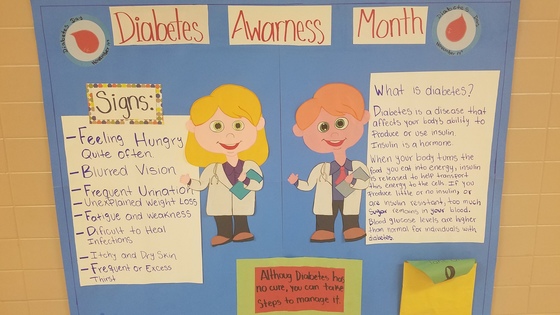 Diabetes Awarness Month
Signs:
- Feeling Hungry
Quite often
- Blurred Vision
- Frequent Urination
- Unexplained Weight Loss
- Fatigue and weakness
- Dificult to Heal
Infections
- Itchy and Dry Skin
- Frequent or Excess
Thirst
What is diabetes?
Diabetes is a disease that
affects your body's ability to
produce or use insulin.
Insulin is a hormone.
When your body turns the
food you eat into energy, insulin
is released to help transport
this energy to the cells. If you
produce little or no insulin, or
are insulin resistant, too much
sugar remains in your blood.
Blood glucose levels are higher
than normal for individuals with
diabetes.
Althoug Diabetes has
no cure, you can take
steps to manage it.